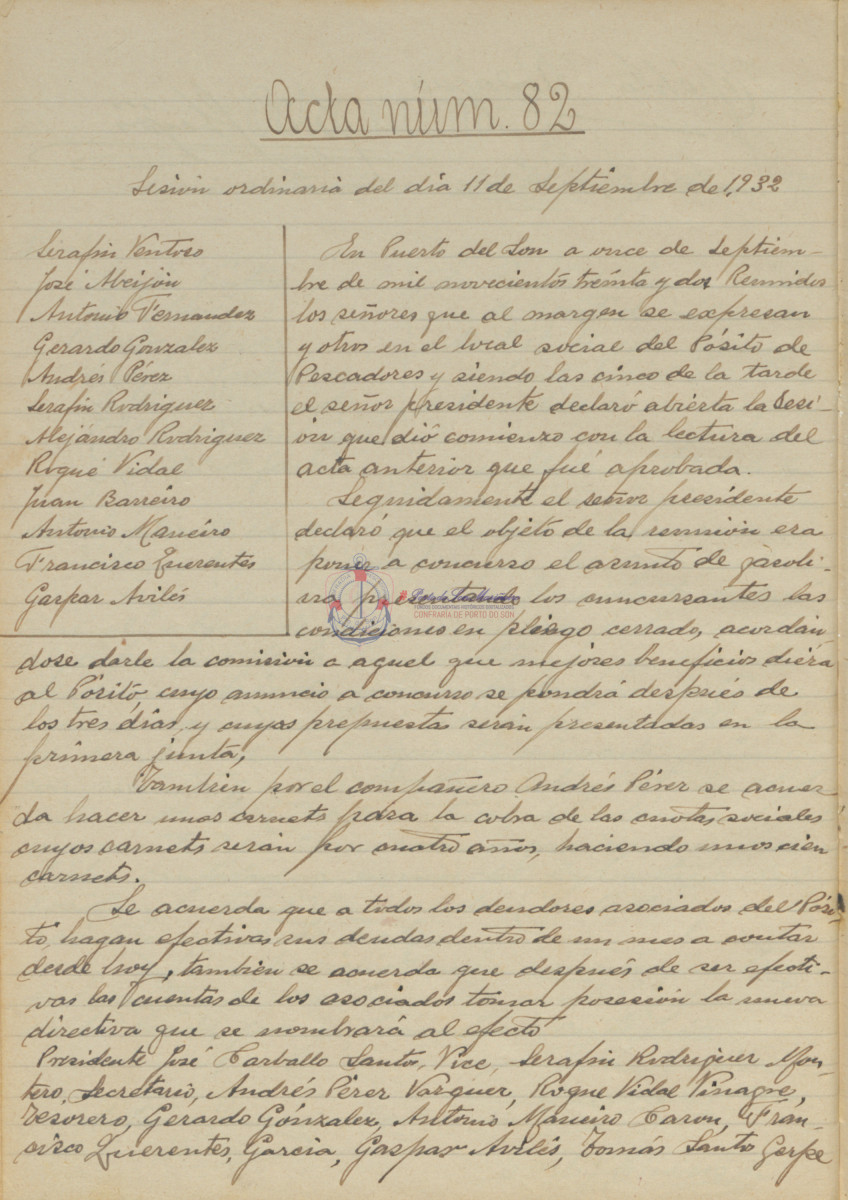 Acta núm. 82
Sesión ordinaria del día 11 de Septiembre de 1,932
Serafin Ventoso
José Abeijón
Antonio Fernandez
Gerardo Gonzalez
Andrés Pérez
Serafin Rodriguez
Alejándro Rodriguez
Roqué Vidal
Juan Barreiro
Antonio Maneiro
Francisco Querentes
Gaspar Avilés
En Puerto del Son a once de Septiem-
bre de mil novecientos treinta y dos Reunidos
los señores que al margen se expresan
y otros en el local social del Pósito de
Pescadores y siendo las cinco de la tarde
el señor presidente declaró abierta la Sesi-
ón que dió comienzo con la lectura del
acta anterior que fué aprobada.
Seguidamente el señor presidente
declaró que el objeto de la reunión era
poner a concurso el asunto de gasoli-
na presentando los concursantes las
condiciones en pliego cerrado, acordan-
dose darle la comisión a aquel que mejores beneficios diéra
al Pósito, cuyo anuncio a concurso se pondrá después de
los tres días y cuyas propuestas serán presentadas en la
primera junta,
Tambien por el compañero Andrés Pérez se acuer-
da hacer unos carnets para la cobra de las cuotas sociales
cuyos carnets serán por cuatro años, haciendo unos cien
carnets.
Se acuerda que a todos los deudores asociados del Pósi-
to, hagan efectivas sus deudas dentro de un mes a contar
desde hoy, tambien se acuerda que después de ser efecti-
vas las cuentas de los asociados tomar posesión la nueva
directiva que se nombrará al efecto
Presidente José Carballo Santos, Vice, Serafin Rodriguez Mon-
tero, Secretario, Andrés Pérez Vazquez, Roque Vidal Pinagre,
Tesorero, Gerardo Gónzalez, Antonio Maneiro Caron, Fran-
cisco Querentes, Garcia, Gaspar Avilés, Tomás Santos Gerpe
FONDOS DOCUMENTAIS HISTÓRICOS DIXITALIZADOS
CONFRARÍA DE PORTO DO SON